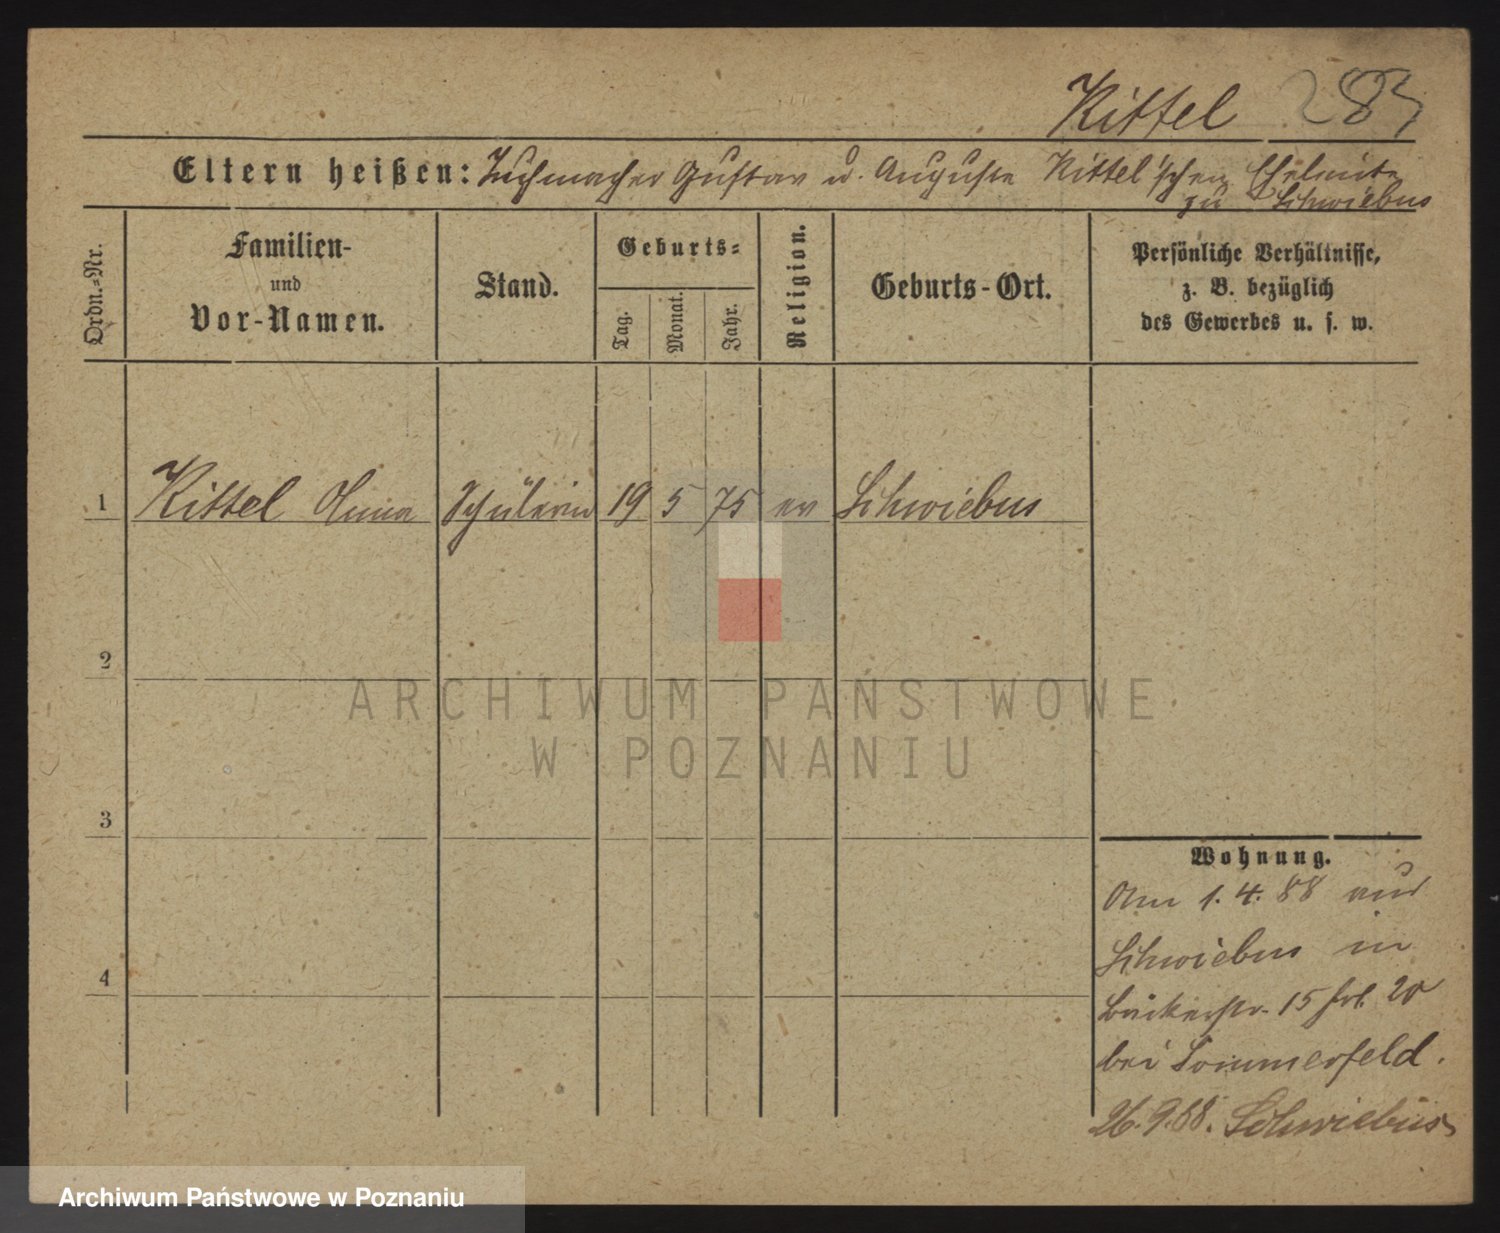 Kittel 283
Eltern heißen: Tuchmacher Gustav u. Auguste Kittel'schen Eheleute
zu Schwiebus
Ordn.-Nr.
Familien-
und
Vor-Namen.
Stand.
Geburts-
Tag.
Monat.
Jahr.
Religion.
Geburts-Ort.
Persönliche Verhältnisse,
z. B. bezüglich
des Gewerbes u. s. w.
1 Kittel Anna Schülerin 19 5 75 ev Schwiebus
2
3
4
Wohnung.
Am 1. 4. 88 aus
Schwiebus in
Bäckerstr. 15
bei Sommerfeld.
26. 9. 88. Schwiebus
ARCHIWUM PAŃSTWOWE
W POZNANIU
Archiwum Państwowe w Poznaniu